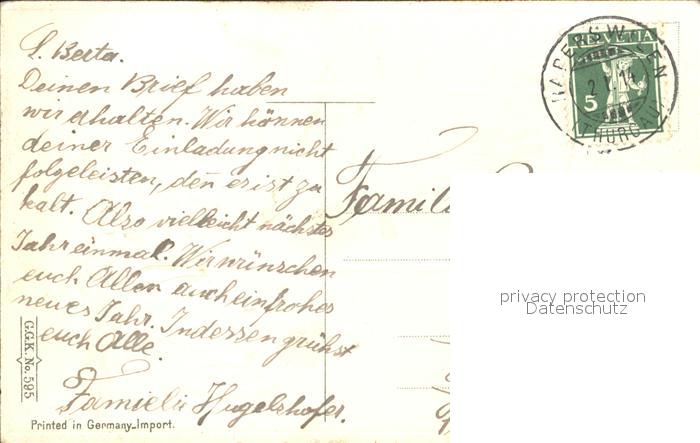 L. Berta.
Deinen Brief haben
wir erhalten. Wir können
deiner Einladung nicht
folgeleisten, den er ist zu
kalt. Also vielleicht nächstes
Jahr einmal. Wir wünschen
euch Allen auch ein frohes
neues Jahr. Indessen grüsst
euch Alle.
Familie Hugelshofer.
G.G.K. No. 595
Printed in Germany_Import.
HELVETIA
5
THURGAU
Famili
privacy protection
Datenschutz